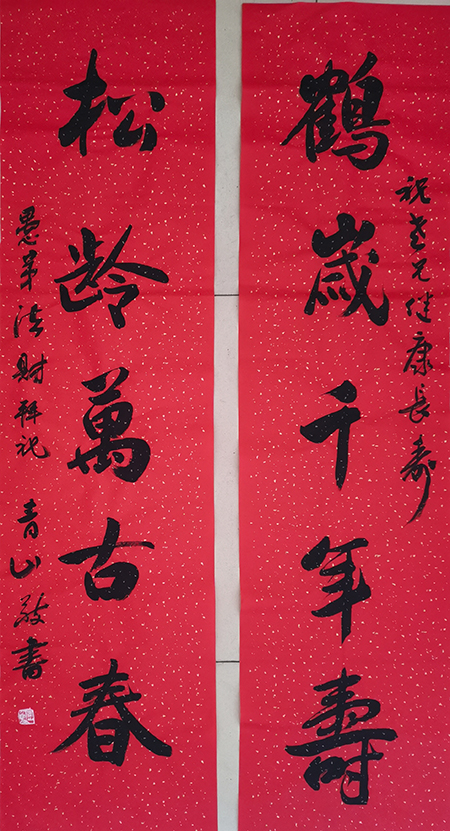 鶴歲千年壽
祝老兄健康長壽
松齡萬古春
愚弟法財拜祝
青山敬書